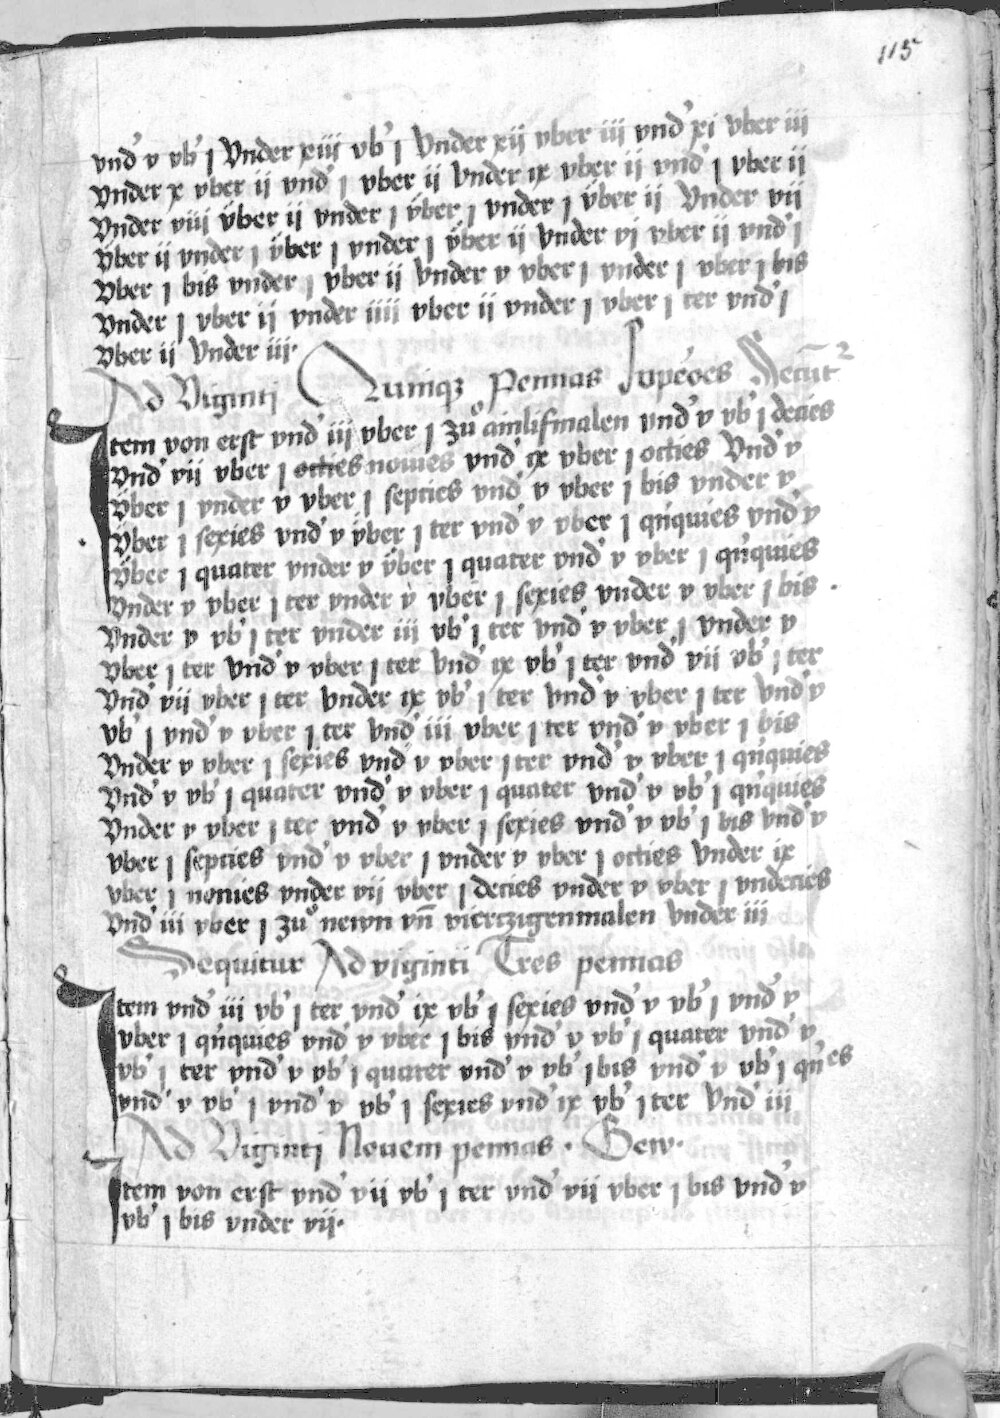 115
vnd' v vb' j Vnder xiij vb' j Vnder xij vber iij vnd' xj vber iij
Vnder x vber ij vnd' j vber ij Vnder ix vber ij vnd' j vber ij
Vnder viij v̈ber ij vnder j v̈ber j vnder j v̈ber ij Vnder vij
V̈ber ij vnder j v̈ber j vnder j v̈ber ij Vnder vj vber ij vnd' j
Vber j bis vnder j vber ij Vnder v vber j vnder j vber j bis
Vnder j vber ij vnder iiij vber ij vnder j vber j ter vnd' j
Vber ij Vnder iij.
Ad Vigintj Quinqz Pennas
Item von erst vnd' iij vber j zuͦ ainlifmalen vnd' v vb' j decies
Vnd' vij vber j octies nonies vnd' ix vber j octies Vnd' v
V̈ber j vnder v vber j septies vnd' v vber j bis vnder v
V̈ber j sexies vnd' v v̈ber j ter vnd' v vber j qn̄quies vnd' v
V̈ber j quater vnder v v̈ber j quater vnd' v vber j qn̄quies
Vnder v vber j ter vnder v vber j sexies vnder v vber j bis
Vnder v vb' j ter vnder iij vb' j ter vnd' v vber j vnder v
Vber j ter Vnd' v vber j ter Vnd' ix vb' j ter vnd' vij vb' j ter
Vnd' vij vber j ter Vnder ix vb' j ter Vnd' v vber j ter Vnd' v
vb' j vnd' v vber j ter Vnd' iij vber j ter vnd' v vber j bis
Vnder v vber j sexies vnd' v vber j ter vnd' v vber j qn̄quies
Vnd' v vb' j quater vnd' v vber j quater vnd' v vb' j qn̄quies
Vnder v vber j ter vnd' v vber j sexies vnd' v vb' j bis Vnd' v
vber j septies vnd' v vber j vnder v vber j octies Vnder ix
vber j nonies vnder vij vber j decies vnder v vber j vndecies
Vnd' iij vber j zuͦ newn vn̄ viertzigenmalen Vnder iij
Sequitur Ad viginti Tres pennas
Item vnd' iij vb' j ter vnd' ix vb' j sexies vnd' v vb' j vnd' v
vber j qn̄quies vnd' v vber j bis vnd' v vb' j quater vnd' v
vb' j ter vnd' v vb' j quater vnd' v vb' j bis vnd' v vb' j qn̄es
vnd' v vb' j vnd' v vb' j sexies vnd' ix vb' j ter Vnd' iij
Ad Vigintj Nouem pennas .
Item von erst vnd' vij vb' j ter vnd' vij vber j bis vnd' v
vb' j bis vnder vij.